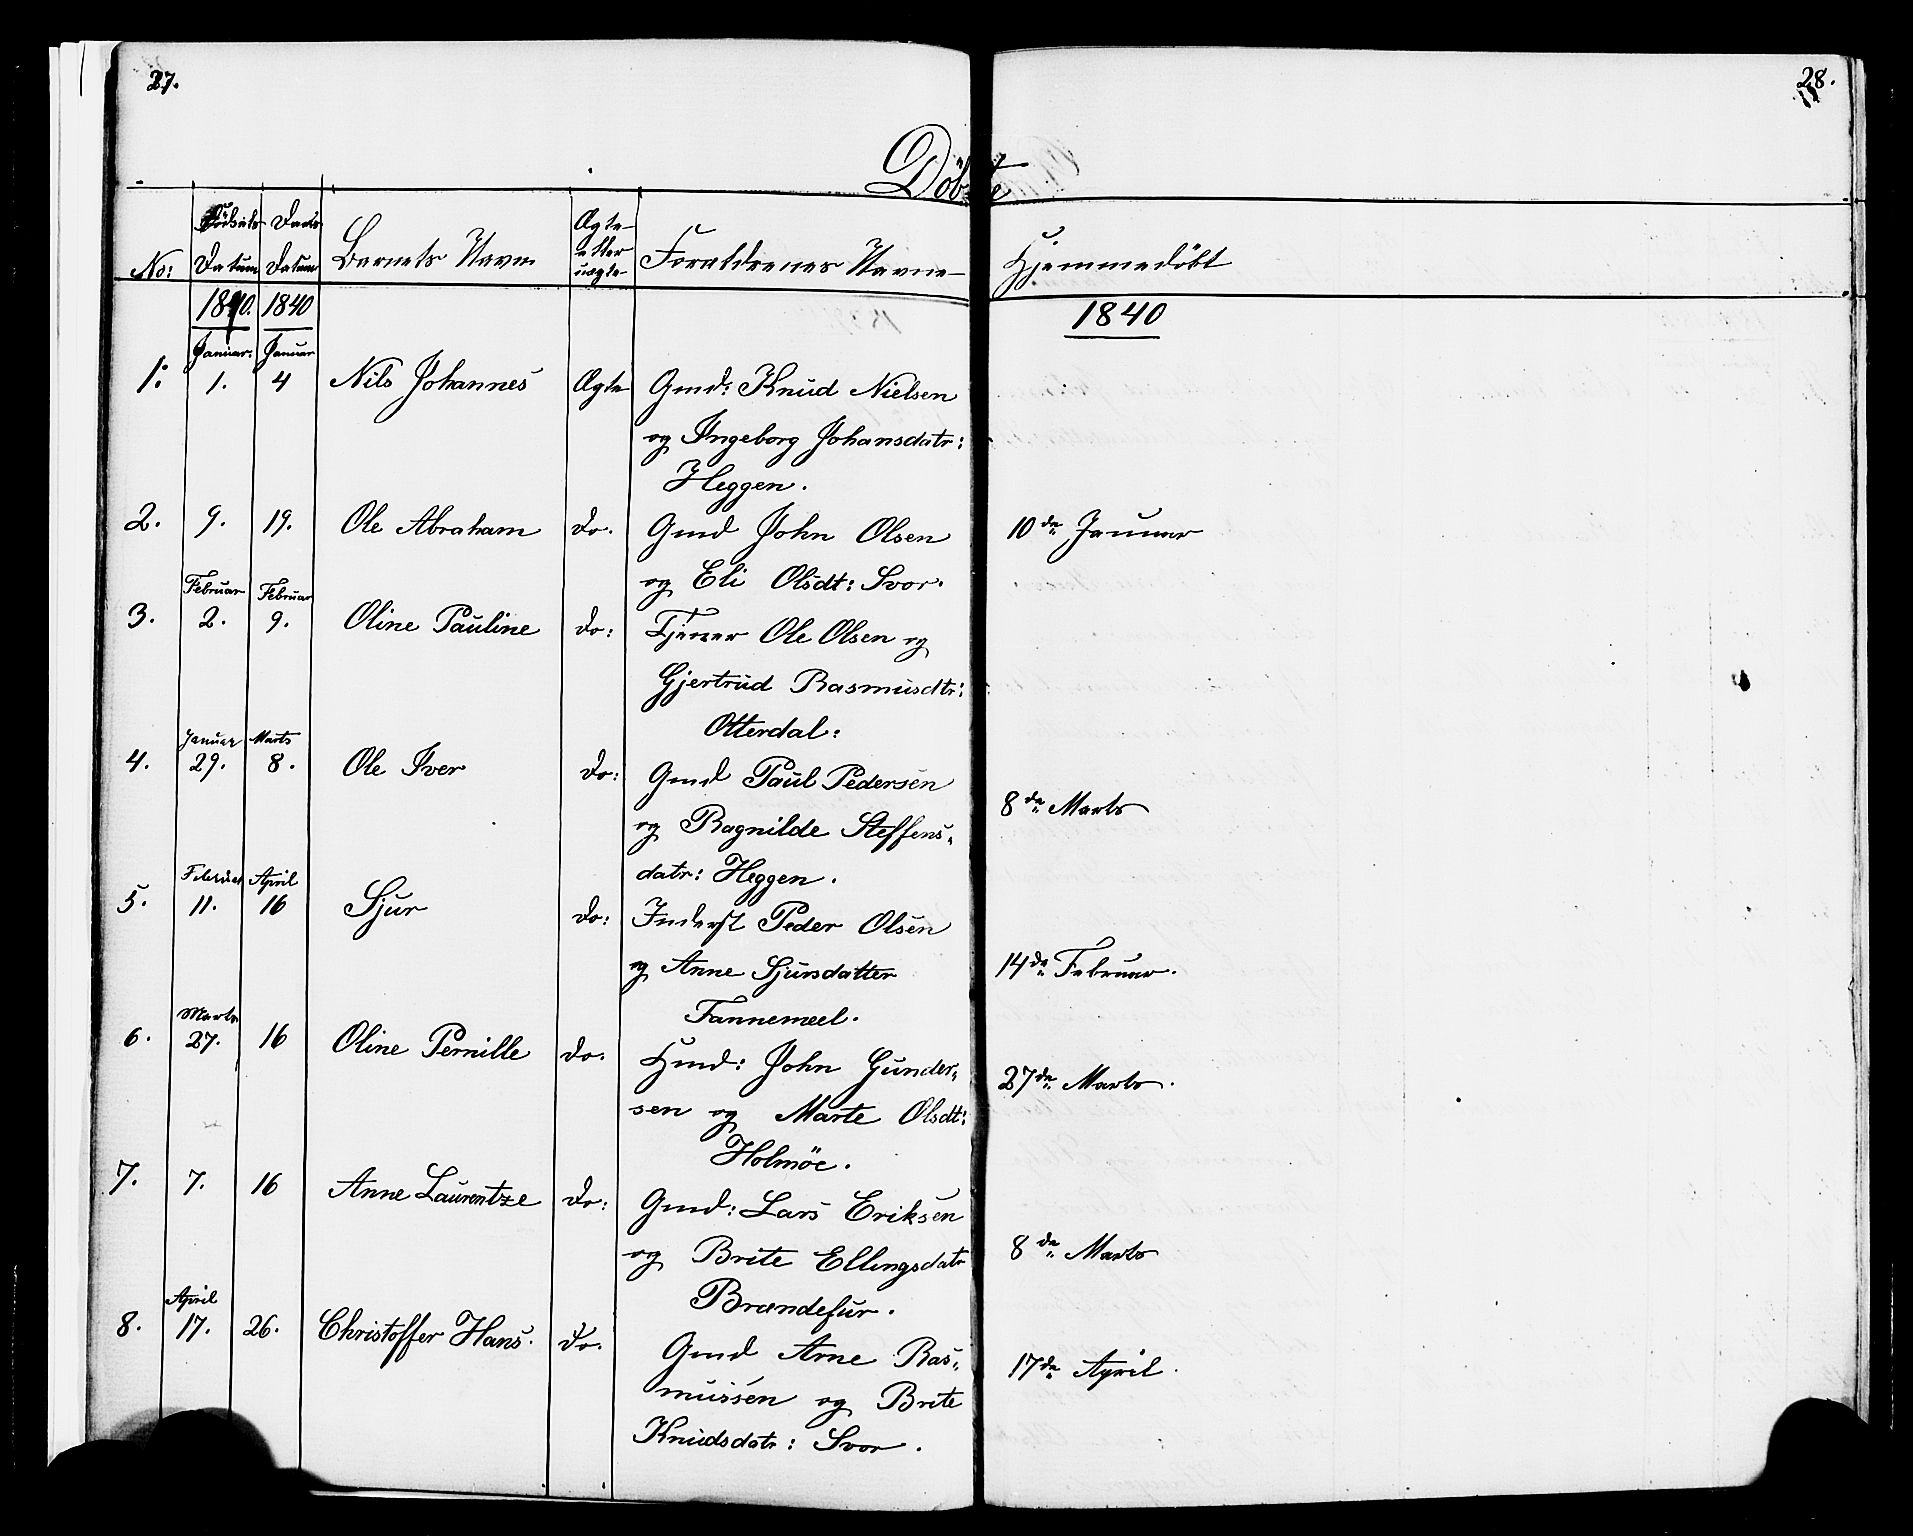 27.
28.
Döbte
No:
Födsels Datum
Daabs Datum
Barnets Navn
Ægte eller uægte
Forældrenes Navne
Hjemmedöbt
1840. 1840
1840
Januar: Januar
1: 1. 4 Nils Johannes Ægte Gmd: Knud Nielsen
og Ingeborg Johansdatr:
Heggen.
2. 9. 19. Ole Abraham do. Gmd John Olsen 10de Januar
og Eli Olsdt: Svor.
Februar Februar
3. 2. 9. Oline Pauline do: Tjener Ole Olsen og
Gjertrud Rasmusdtr:
Otterdal:
Januar Marts
4. 29. 8. Ole Iver do: Gmd Paul Pedersen
8de Marts
og Ragnilde Steffens-
datr: Heggen.
Februar April
5. 11. 16 Sjur do: Inderst Peder Olsen
og Anne Sjursdatter 14de Februar.
Tannemeel.
Marts
6. 27. 16 Oline Pernille do. Hmd: John Gunder-
27de Marts.
sen og Marte Olsdt:
Holmöe.
7. 7. 16 Anne Laurentze do: Gmd: Lars Eriksen
og Brite Ellingsdatr 8de Marts
Brændefur.
April
8. 17. 26. Christoffer Hans. do. Gmd Arne Ras-
17de April.
mussen og Brite
Knudsdatr: Svor.